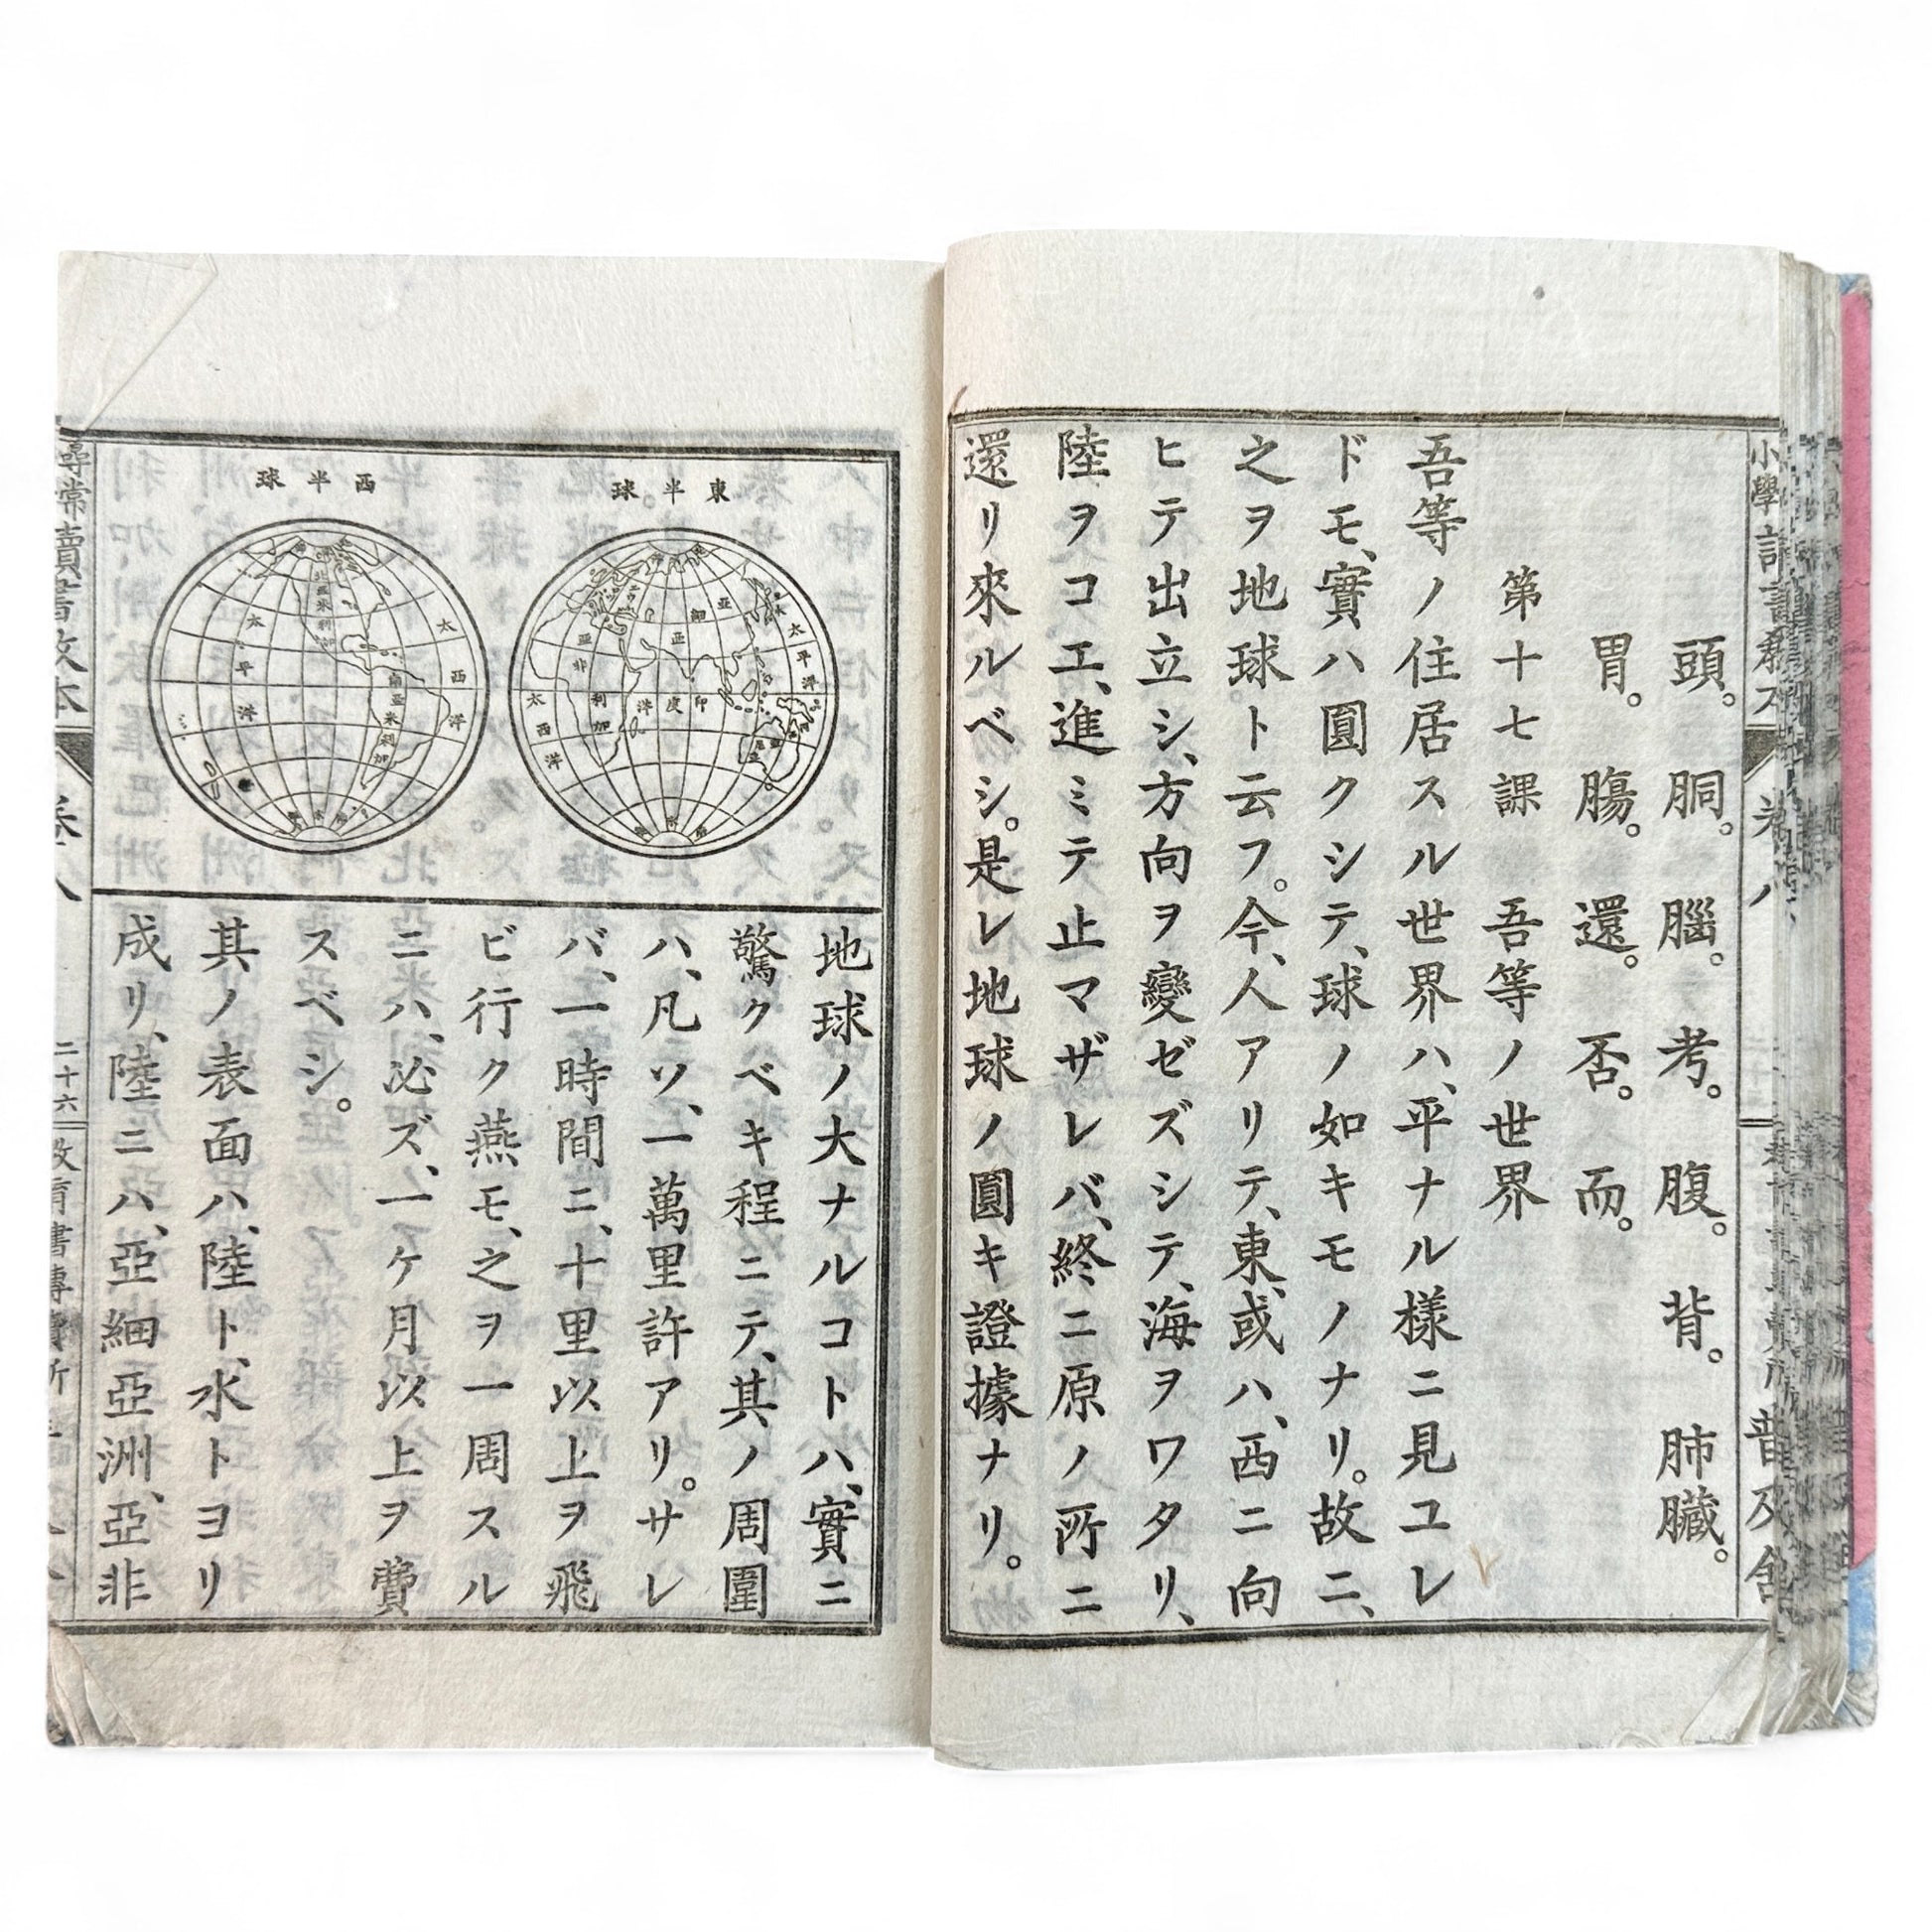 頭。胴。腦。考。腹。背。肺臓。
胃。腸。還。否。而。
第十七課 吾等ノ世界
吾等ノ住居スル世界ハ、平ナル樣ニ見ユレ
ドモ、實ハ圓クシテ、球ノ如キモノナリ。故ニ、
之ヲ地球ト云フ。今、人アリテ、東、或ハ、西ニ向
ヒテ出立シ、方向ヲ變ゼズシテ、海ヲワタリ、
陸ヲコエ、進ミテ止マザレバ、終ニ原ノ所ニ
還リ來ルベシ。是レ地球ノ圓キ證據ナリ。
東半球
西半球
太平洋
亞細亞
亞非利加
印度洋
太西洋
北亞米利加
南亞米利加
太平洋
太西洋
地球ノ大ナルコトハ、實ニ
驚クベキ程ニテ、其ノ周圍
ハ、凡ソ、一萬里許アリ。サレ
バ、一時間ニ、十里以上ヲ飛
ビ行ク燕モ、之ヲ一周スル
ニハ、必ズ、一ケ月以上ヲ費
スベシ。
其ノ表面ハ、陸ト、水トヨリ
成リ、陸ニハ、亞細亞洲、亞非
尋常讀書敎本
卷八
二十六